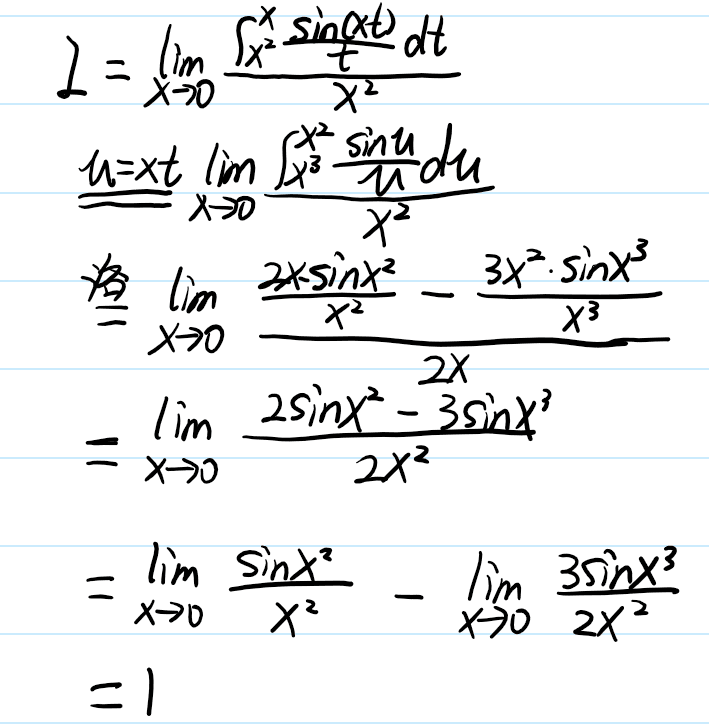 I = lim_{x→0} \frac{∫_{x^2}^{x} \frac{sin(xt)}{t} dt}{x^2}
\underline{\underline{u=xt}} lim_{x→0} \frac{∫_{x^3}^{x^2} \frac{sin u}{u} du}{x^2}
洛= lim_{x→0} \frac{\frac{2x·sinx^2}{x^2} - \frac{3x^2·sinx^3}{x^3}}{2x}
= lim_{x→0} \frac{2sinx^2 - 3sinx^3}{2x^2}
= lim_{x→0} \frac{sinx^2}{x^2} - lim_{x→0} \frac{3sinx^3}{2x^2}
= 1